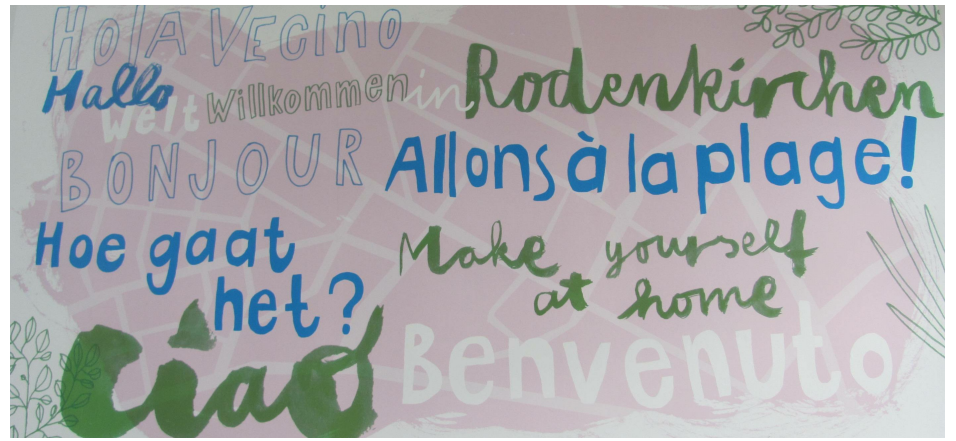 HOLA VECINO
Hallo
Welt Willkommen in Rodenkirchen
BONJOUR
Allons à la plage!
Hoe gaat
het?
Make yourself
at home
Ciao
Benvenuto